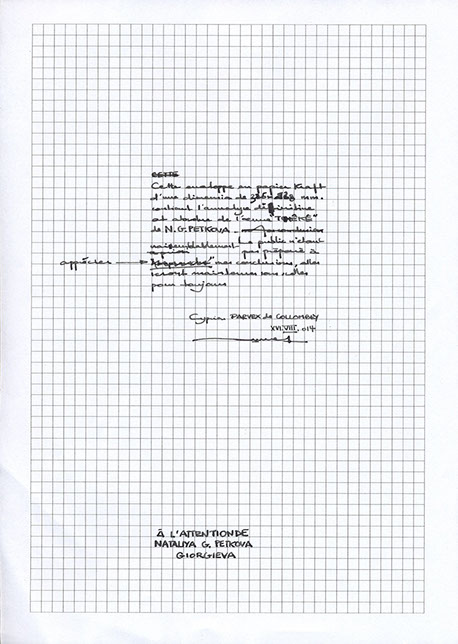 CETTE
Cette enveloppe en papier Kraft
d'une dimension de mm.
contient l'analyse définitive
et absolue de l'œuvre "THÊKÊ"
de N. G. PETKOVA.
vraisemblablement Le public n'étant
pas préparé à
apprécier nos conclusions, elles
seront maintenues sous scellés
pour toujours
PARVEX de COLLOMBEY
XVI.VIII.014
À L'ATTENTION DE
NATALIYA G. PETKOVA
GIORGIEVA